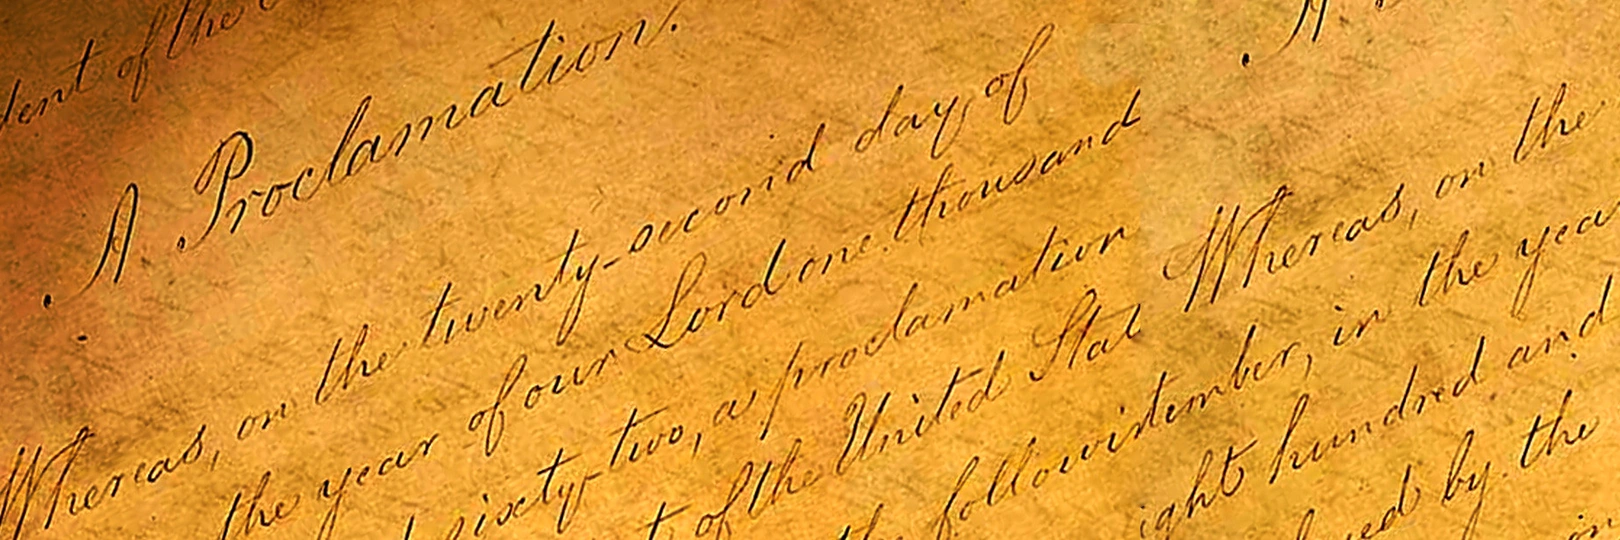 dent of the
A Proclamation.
Whereas, on the twenty-second day of
the year of our Lord one thousand
sixty-two, a proclamation
t of the United Stat
follow
A
Whereas, on the
tember, in the yea
ight hundred and
ed by the